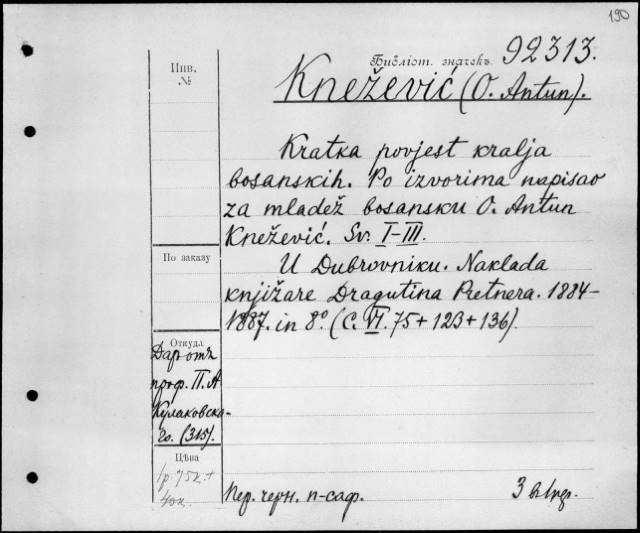 190
Библіот. значекъ 92313.
Инв.
№
Knežević (O. Antun).
Kratka povjest kralja
bosanskih. Po izvorima napisao
za mladež bosansku O. Antun
Knežević. Sv. I-III.
По заказу
U Dubrovniku. Naklada
knjižare Dragutina Pretnera. 1884-
1887. in 8º. (C. VI. 75 + 123 + 136).
Откуда
Даръ отъ
проф. П. А.
Кулаковска-
го. (315).
Цѣна
1р. 75к. +
40к.
Пер. черн. п-саф.
3 въ 1